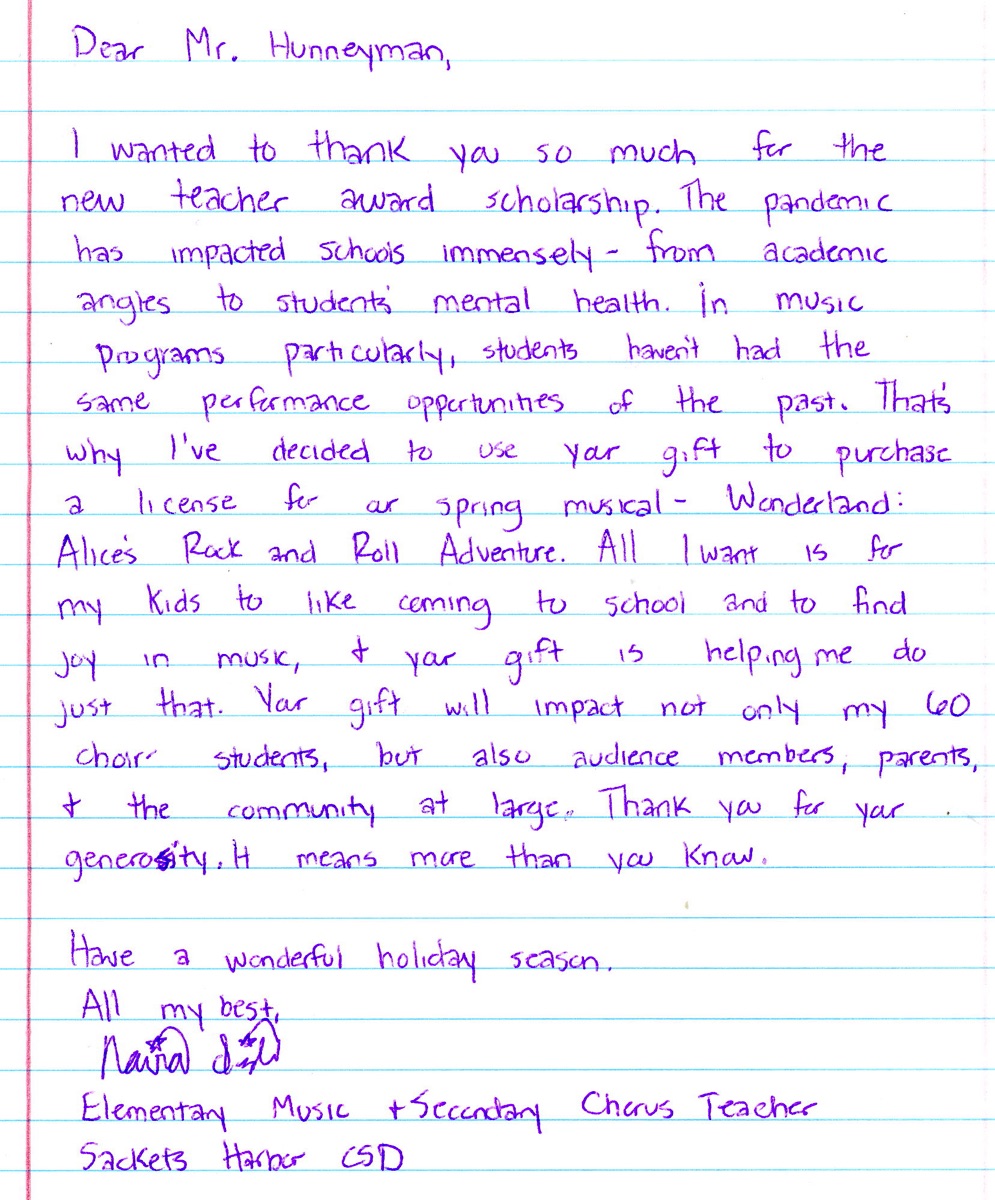 Dear Mr. Hunneyman,
I wanted to thank you so much for the
new teacher award scholarship. The pandemic
has impacted schools immensely - from academic
angles to students' mental health. In music
programs particularly, students haven't had the
same performance opportunities of the past. That's
why I've decided to use your gift to purchase
a license for our spring musical - Wonderland:
Alice's Rock and Roll Adventure. All I want is for
my kids to like coming to school and to find
joy in music, + your gift is helping me do
just that. Your gift will impact not only my 60
choir students, but also audience members, parents,
+ the community at large. Thank you for your
generosity. It means more than you know.
Have a wonderful holiday season.
All my best,
Elementary Music + Secondary Chorus Teacher
Sackets Harbor CSD